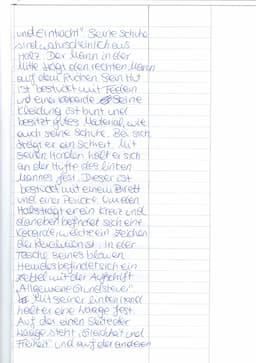 und Eintracht". Seine Schuhe
sind wahrscheinlich aus
Holz. Der Mann in der
Mitte trägt den rechten Mann
auf dem Rücken. Sein Hut
ist bestückt mit Federn
und einer Kokarde. Seine
Kleidung ist bunt und
besitzt gutes Material, wie
auch seine Schuhe. Bei sich
trägt er ein Schwert. Mit
seinen Händen hält er sich
an der Hüfte des linken
Mannes fest. Dieser ist
bestückt mit einem Barett
und einer Perücke. Um den
Hals trägt er ein Kreuz und
daneben befindet sich eine
Kokarde, welche ein Zeichen
der Revolution ist. In der
Tasche seines blauen
Hemdes befindet sich ein
Zettel mit der Aufschrift
"Allgemeine Grundsteuer".
Mit seiner linken Hand
hält er eine Waage fest.
Auf der einen Seite der
Waage steht "Gleichheit und
Freiheit" und auf der anderen